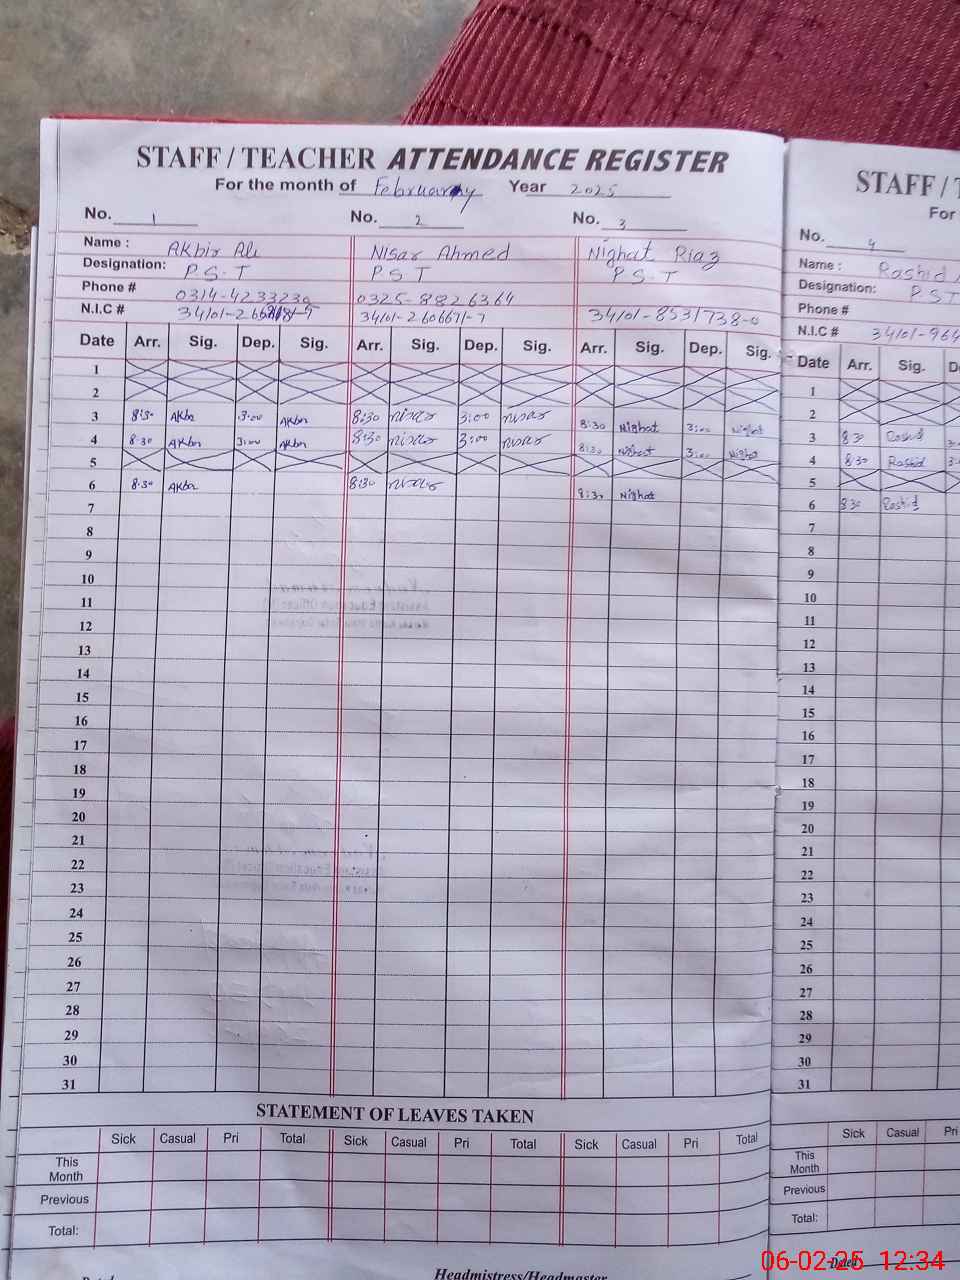 STAFF / TEACHER ATTENDANCE REGISTER
For the month of February Year 2025
No. 1 No. 2 No. 3
Name : Akbir Ali Nisar Ahmed Nighat Riaz
Designation: P.S.T PST P.S.T
Phone # 0325-8826364
N.I.C # 34101-260667/-7 34101-8531738-0
Date Arr. Sig. Dep. Sig. Arr. Sig. Dep. Sig. Arr. Sig. Dep. Sig.
1
2
3 8:30 Akbir 3:00 Akbir 8:30 nisar 3:00 nisar 8:30 Nighat 3:00 Nighat
4 8:30 Akbir 3:00 Akbir 8:30 nisar 3:00 nisar 8:30 Nighat 3:00 Nighat
5
6 8:30 Akbir 8:30 nisar 8:30 Nighat
7
8
9
10
11
12
13
14
15
16
17
18
19
20
21
22
23
24
25
26
27
28
29
30
31
STATEMENT OF LEAVES TAKEN
Sick Casual Pri Total Sick Casual Pri Total Sick Casual Pri Total
This
Month
Previous
Total:
Headmistress/Headmaster
STAFF / T
For
No. 4
Name : Rashid
Designation: PST
Phone #
N.I.C # 34101-964
Date Arr. Sig. D
1
2
3 8:30 Rashid
4 8:30 Rashid
5
6 8:30 Rashid
7
8
9
10
11
12
13
14
15
16
17
18
19
20
21
22
23
24
25
26
27
28
29
30
31
Sick Casual Pri
This
Month
Previous
Total:
Dated
06-02-25 12:34